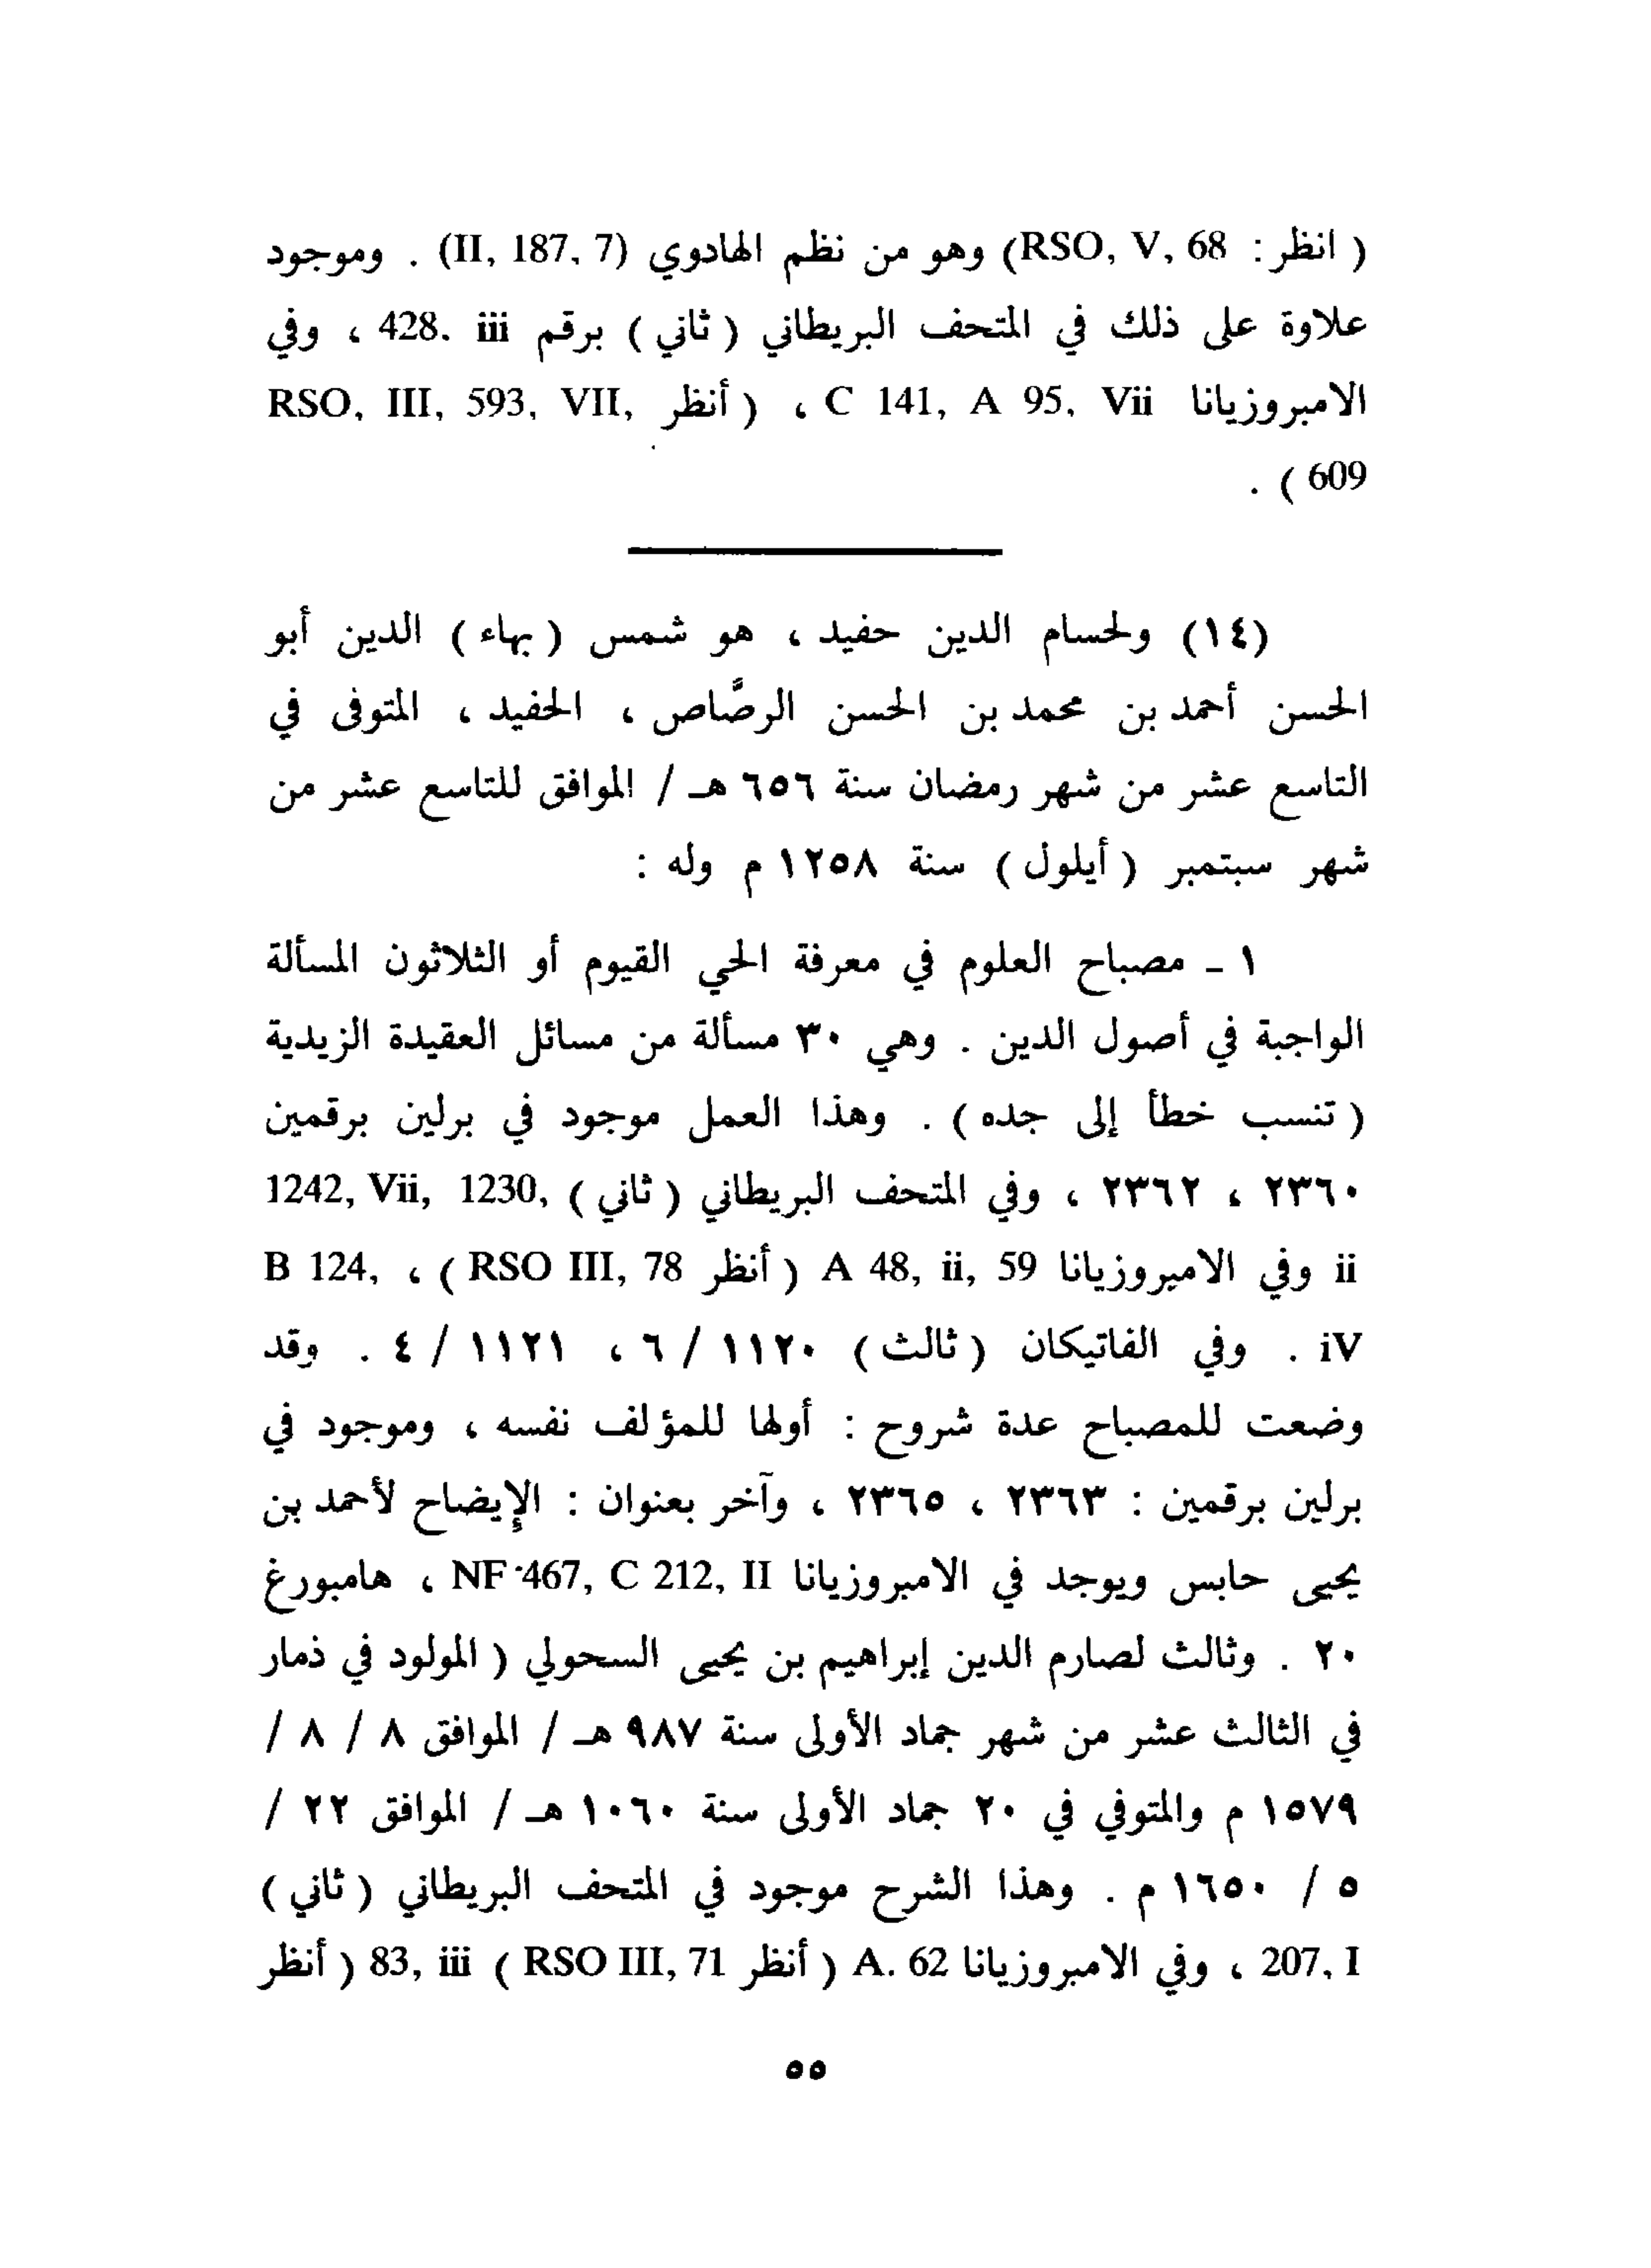 ( انظر : RSO, V, 68) وهو من نظم الهادوي (II, 187, 7) . وموجود
علاوة على ذلك في المتحف البريطاني ( ثاني ) برقم 428. iii ، وفي
الامبروزيانا C 141, A 95, Vii ، ( أنظر RSO, III, 593, VII,
609 ) .
(١٤) ولحسام الدين حفيد ، هو شمس ( بهاء ) الدين أبو
الحسن أحمد بن محمد بن الحسن الرصَّاص ، الحفيد ، المتوفى في
التاسع عشر من شهر رمضان سنة ٦٥٦ هـ / الموافق للتاسع عشر من
شهر سبتمبر ( أيلول ) سنة ١٢٥٨ م وله :
١ - مصباح العلوم في معرفة الحي القيوم أو الثلاثون المسألة
الواجبة في أصول الدين . وهي ٣٠ مسألة من مسائل العقيدة الزيدية
( تنسب خطأ إلى جده ) . وهذا العمل موجود في برلين برقمين
٢٣٦٠ ، ٢٣٦٢ ، وفي المتحف البريطاني ( ثاني ) 1242, Vii, 1230,
ii وفي الاميروزيانا A 48, ii, 59 ( أنظر RSO III, 78 ) ، B 124,
iV . وفي الفاتيكان ( ثالث ) ١١٢٠ / ٦ ، ١١٢١ / ٤ . وقد
وضعت للمصباح عدة شروح : أولها للمؤلف نفسه ، وموجود في
برلين برقمين : ٢٣٦٣ ، ٢٣٦٥ ، وآخر بعنوان : الإيضاح لأحمد بن
يحيى حابس ويوجد في الامبروزيانا NF 467, C 212, II ، هامبورغ
٢٠ . وثالث لصارم الدين إبراهيم بن يحيى السحولي ( المولود في ذمار
في الثالث عشر من شهر جماد الأولى سنة ٩٨٧ هـ / الموافق ٨ / ٨ /
١٥٧٩ م والمتوفي في ٢٠ جماد الأولى سنة ١٠٦٠ هـ / الموافق ٢٢ /
٥ / ١٦٥٠ م . وهذا الشرح موجود في المتحف البريطاني ( ثاني )
207, I ، وفي الامبروزيانا A. 62 ( أنظر RSO III, 71 ) 83, iii ( أنظر
٥٥